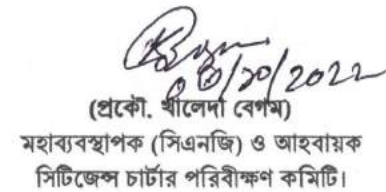 ০৩/১০/২০২২
(প্রকৌ. খালেদা বেগম)
মহাব্যবস্থাপক (সিএনজি) ও আহবায়ক
সিটিজেন্স চার্টার পরিবীক্ষণ কমিটি।